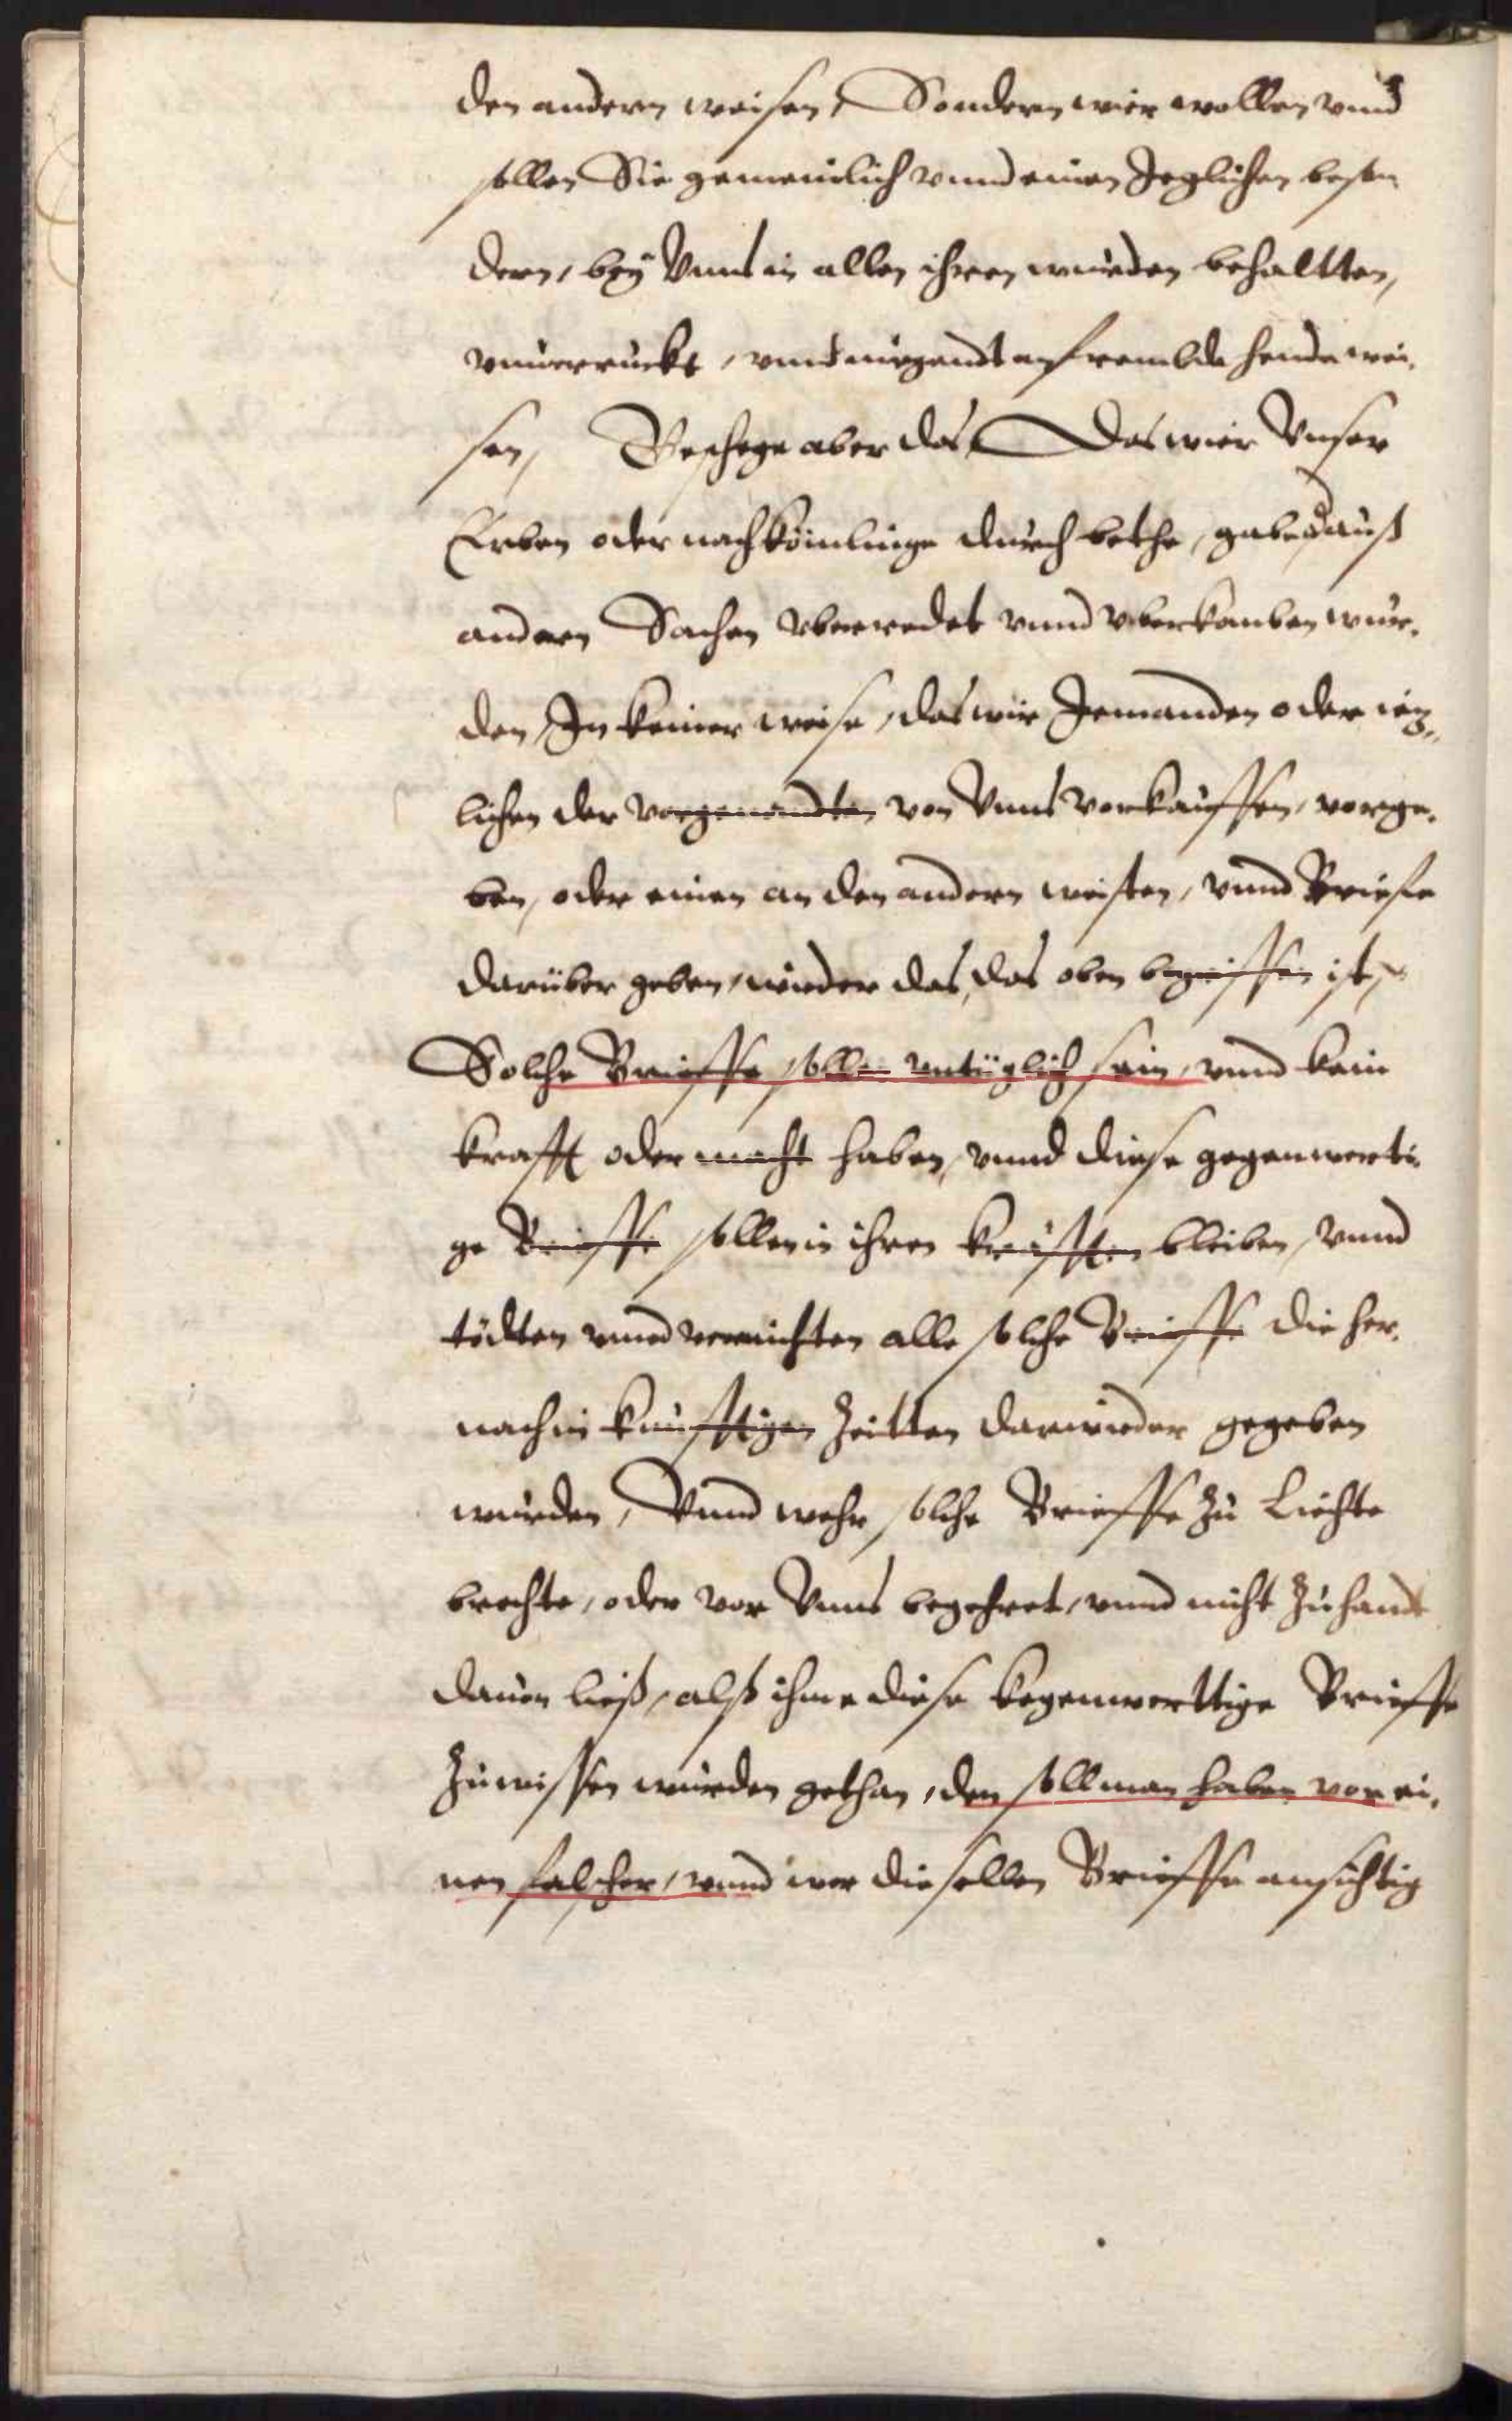 den andern weisen, Sondern wier wollen vnnd
sollen Sie gemeinlich vnnd einen Jeglichen beson
dern, beÿ Vnns in allen ihren wurden behaltten,
vnuerruckt, vnd nirgendt an frembde hende wei,
sen, Geschege aber das, Das wier Vnser
Erben oder nachkömlinge durch bethe, gabe, auß
andern Sachen vberredet vnnd vberkomben wur,
den, In keiner weise, das wir Jemanden oder ieg,,
lichen der vorgenandten von Vnns vorkauffen, vorge,
ben, oder einen an den andern weisten, vnnd Briefe
darüber geben, wieder das, das oben begriffen ist,
Solche Brieffe sollen vntüglich sein, vnnd kein
krafft oder macht haben, vnnd diese gegenwerti,
ge Brieffe sollen in ihren krefften bleiben, vnnd
tödten vnnd vernichten alle solche Brieffe die her,
nach in kunfftigen Zeitten darwieder gegeben
wurden, Vnnd wehr solche Brieffe zu Liechte
brechte, oder vor Vnns begehret, vnnd nicht zuhandt
dauon ließ, alß ihme diese kegenwerttige Brieffe
zuwissen wurden gethan, den soll man haben vor ei,
nen felscher, vnnd wer dieselben Brieffe ansichtig